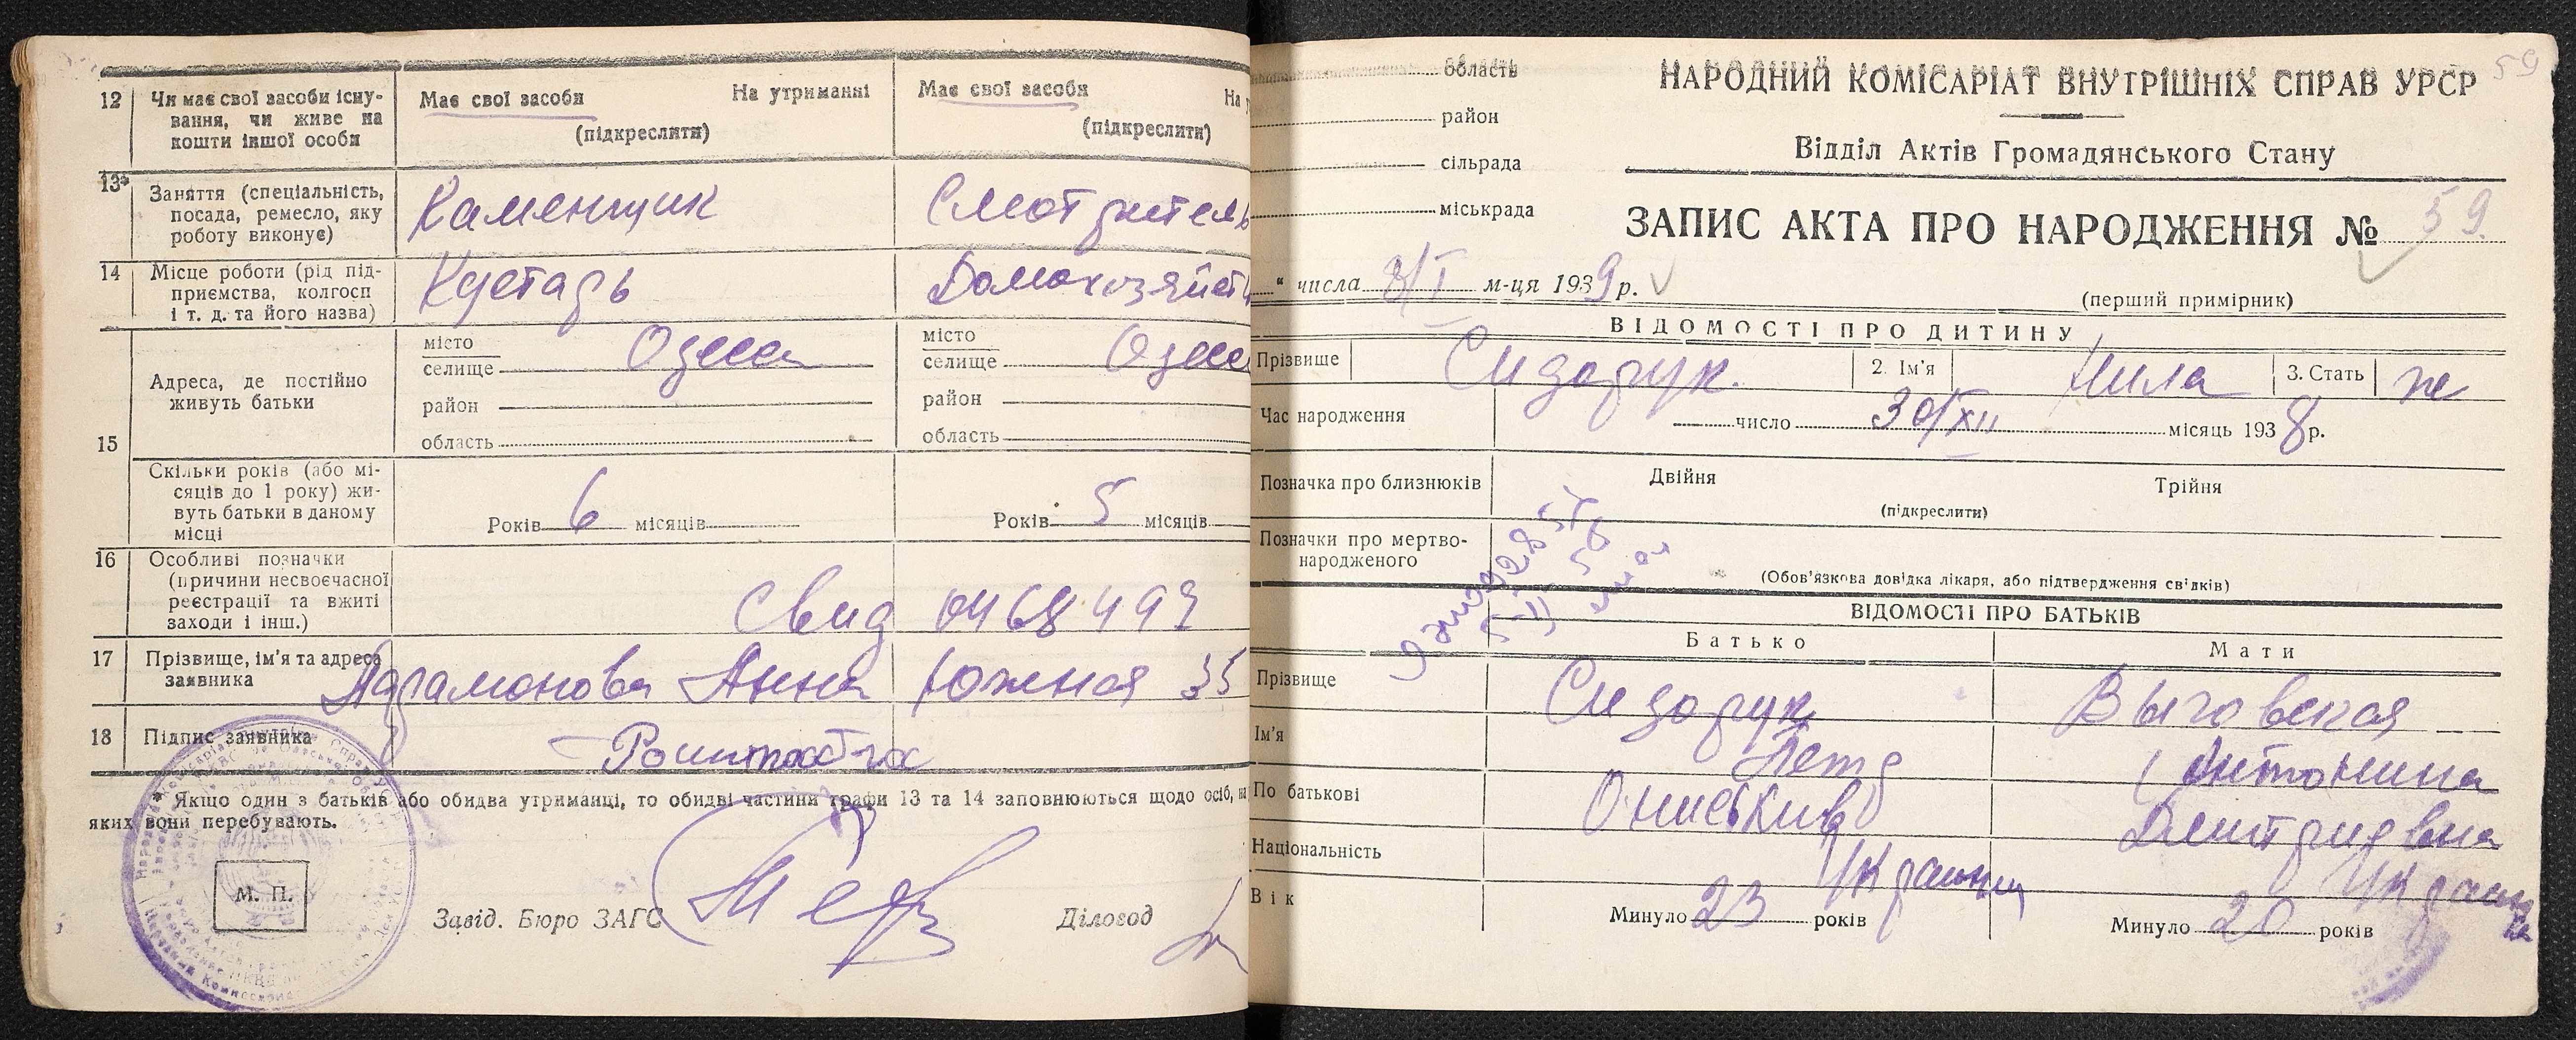 12
Чи має свої засоби існу-
вання, чи живе на
кошти іншої особи
Має свої засоби На утриманні
(підкреслити)
Має свої засоби На
(підкреслити)
13*
Заняття (спеціальність,
посада, ремесло, яку
роботу виконує)
Каменщик
Смотритель
14
Місце роботи (рід під-
приємства, колгосп
і т. д. та його назва)
Кустарь
15
Адреса, де постійно
живуть батьки
місто
селище
Одесса
район
область
місто
селище
район
область
Скільки років (або мі-
сяців до 1 року) жи-
вуть батьки в даному
місці
Років 6 місяців
Років 5 місяців
16
Особливі позначки
(причини несвоєчасної
реєстрації та вжиті
заходи і інш.)
Свид 0468493
17
Прізвище, ім'я та адреса
заявника
Анна Южная 35
18
Підпис заявника
* Якщо один з батьків або обидва утриманці, то обидві частини графи 13 та 14 заповнюються щодо осіб, на
яких вони перебувають.
М. П.
Завід. Бюро ЗАГС
Діловод
59
область
район
сільрада
міськрада
НАРОДНИЙ КОМІСАРІАТ ВНУТРІШНІХ СПРАВ УРСР
Відділ Актів Громадянського Стану
ЗАПИС АКТА ПРО НАРОДЖЕННЯ № 59.
" числа 8/I м-ця 1939 р.
(перший примірник)
ВІДОМОСТІ ПРО ДИТИНУ
Прізвище Сидорук. 2. Ім'я Нила 3. Стать ж
Час народження число 30/XII місяць 1938 р.
Позначка про близнюків Двійня Трійня
(підкреслити)
Позначки про мертво-
народженого
(Обов'язкова довідка лікаря, або підтвердження свідків)
ВІДОМОСТІ ПРО БАТЬКІВ
Батько Мати
Прізвище Сидорук Выговская
Ім'я Петр Антонина
По батькові Дмитриевна
Національність Украинец
Вік Минуло 23 років Минуло 20 років